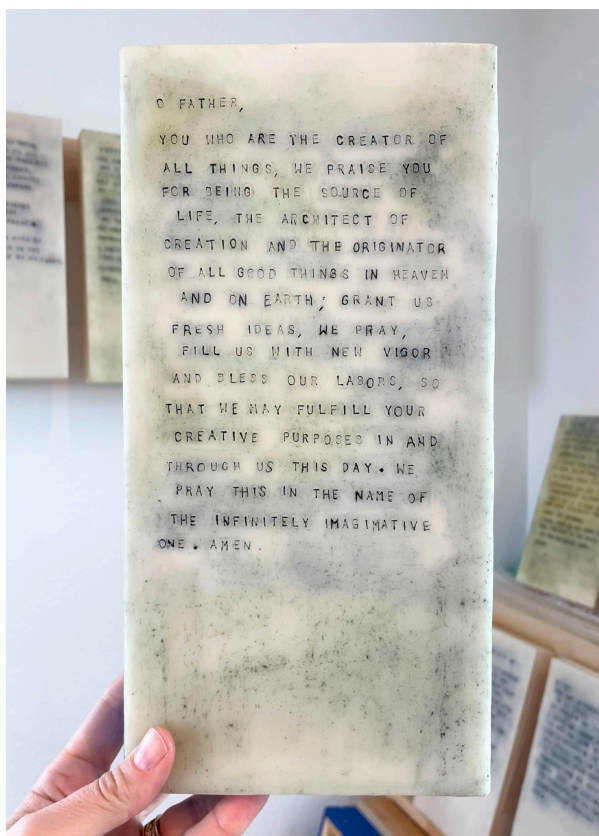 O FATHER,
YOU WHO ARE THE CREATOR OF
ALL THINGS, WE PRAISE YOU
FOR BEING THE SOURCE OF
LIFE, THE ARCHITECT OF
CREATION AND THE ORIGINATOR
OF ALL GOOD THINGS IN HEAVEN
AND ON EARTH; GRANT US
FRESH IDEAS, WE PRAY,
FILL US WITH NEW VIGOR
AND BLESS OUR LABORS, SO
THAT WE MAY FULFILL YOUR
CREATIVE PURPOSES IN AND
THROUGH US THIS DAY. WE
PRAY THIS IN THE NAME OF
THE INFINITELY IMAGIMATIVE
ONE. AMEN.